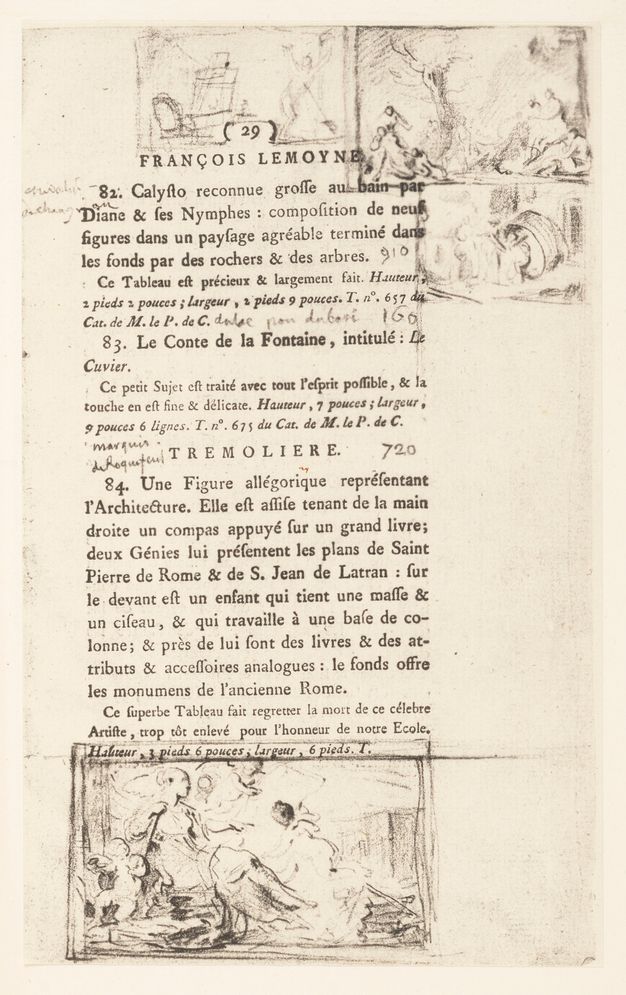 ( 29 )
FRANÇOIS LEMOYNE.
82. Calyſto reconnue groſſe au bain par
Diane & ſes Nymphes : compoſition de neuf
figures dans un payſage agréable terminé dans
les fonds par des rochers & des arbres. 910
Ce Tableau eſt précieux & largement fait. Hauteur,
2 pieds 2 pouces ; largeur, 2 pieds 9 pouces. T. nº. 657 du
Cat. de M. le P. de C. 160
83. Le Conte de la Fontaine, intitulé : Le
Cuvier.
Ce petit Sujet eſt traité avec tout l'eſprit poſſible, & la
touche en eſt fine & délicate. Hauteur, 7 pouces ; largeur,
9 pouces 6 lignes. T. nº. 675 du Cat. de M. le P. de C.
marquis
TREMOLIERE. 720
84. Une Figure allégorique repréſentant
l'Architecture. Elle eſt aſſiſe tenant de la main
droite un compas appuyé ſur un grand livre;
deux Génies lui préſentent les plans de Saint
Pierre de Rome & de S. Jean de Latran : ſur
le devant eſt un enfant qui tient une maſſe &
un ciſeau, & qui travaille à une baſe de co-
lonne; & près de lui ſont des livres & des at-
tributs & acceſſoires analogues : le fonds offre
les monumens de l'ancienne Rome.
Ce ſuperbe Tableau fait regretter la mort de ce célebre
Artiſte, trop tôt enlevé pour l'honneur de notre Ecole.
Hauteur, 3 pieds 6 pouces ; largeur, 6 pieds. T.